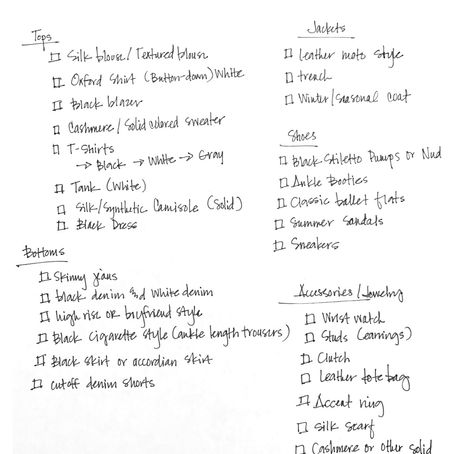 Tops
Silk blouse/Textured blouse
Oxford Shirt (Button-down) White
Black blazer
Cashmere/Solid colored sweater
T-Shirts
→ Black → White → Gray
Tank (White)
Silk/Synthetic Camisole (Solid)
Black Dress
Bottoms
Skinny jeans
black denim and white denim
high rise or boyfriend style
Black cigarette style (ankle length trousers)
Black skirt or accordian skirt
cutoff denim shorts
Jackets
Leather moto style
trench
Winter/Seasonal coat
Shoes
Black Stiletto Pumps or Nud
Ankle Booties
Classic ballet flats
Summer Sandals
Sneakers
Accessories/Jewelry
Wrist watch
Studs (earrings)
Clutch
Leather tote bag
Accent ring
Silk scarf
Cashmere or other solid